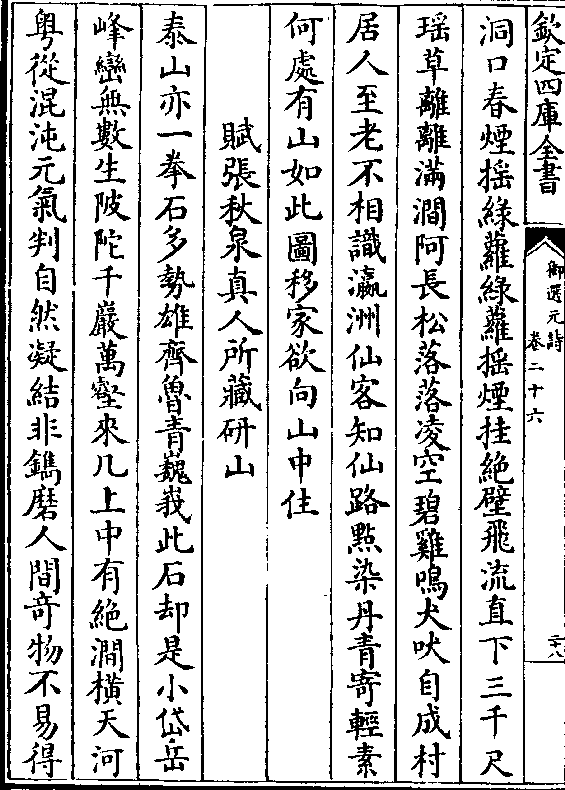 欽定四庫全書
御選元詩
卷二十六
二十八
洞口春煙揺緑蘿緑蘿揺煙挂絶壁飛流直下三千尺
瑶草離離滿澗阿長松落落凌空碧雞鳴犬吠自成村
居人至老不相識瀛洲仙客知仙路㸃染丹青寄輕素
何處有山如此圖移家欲向山中住
賦張秋泉真人所藏研山
泰山亦一拳石多勢雄齊魯青巍峩此石却是小岱岳
峰巒無數生陂陀千巖萬壑來几上中有絶澗横天河
粤從混沌元氣判自然凝結非鐫磨人間竒物不易得